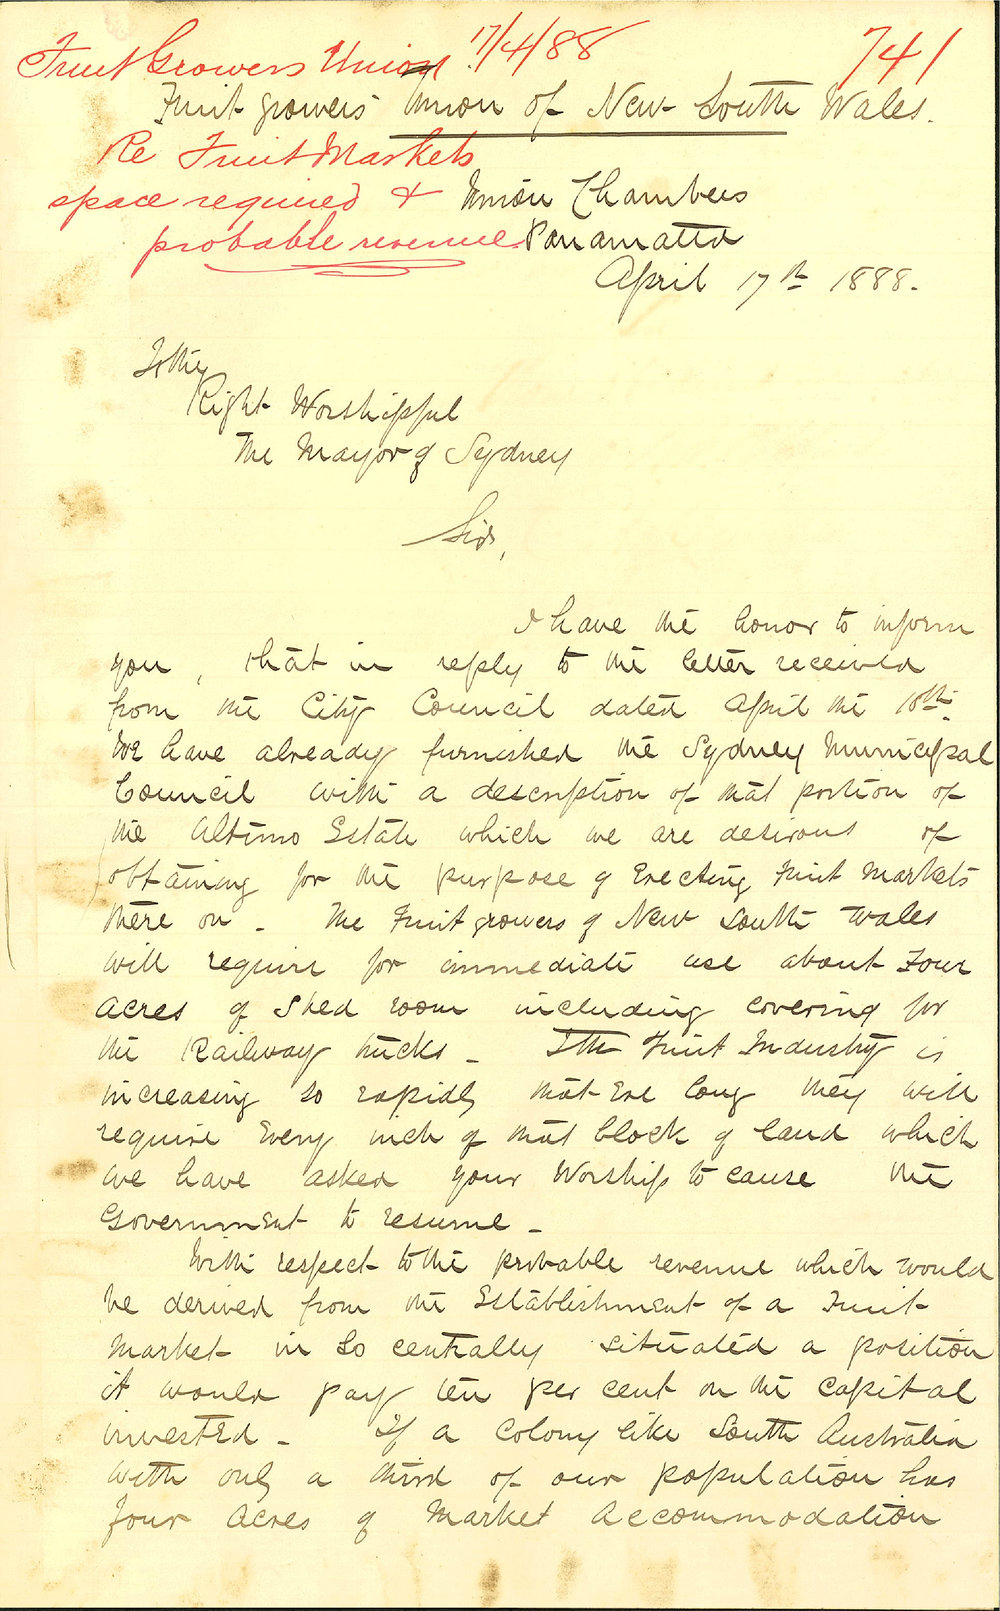 Fruit Growers Union 17/4/88 741
Fruit growers Union of New South Wales.
Re Fruit Markets
space required & Union Chambers
probable revenue. Parramatta
April 17th 1888.
To the
Right Worshipful
The Mayor of Sydney
Sir,
I have the honor to inform
you, that in reply to the letter received
from the City Council dated April the 10th.
We have already furnished the Sydney Municipal
Council with a description of that portion of
the Altimo Estate which we are desirous of
obtaining for the purpose of Erecting Fruit Markets
there on - The Fruit growers of New South Wales
will require for immediate use about Four
Acres of Shed room including covering for
the Railway trucks - The Fruit Industry is
increasing so rapidly that Ere long they will
require Every inch of that block of land which
we have asked your Worship to cause the
Government to resume -
With respect to the probable revenue which would
be derived from the Establishment of a Fruit
Market in so centrally situated a position
it would pay ten per cent on the capital
invested - If a Colony like South Australia
with only a third of our population has
four Acres of Market Accommodation